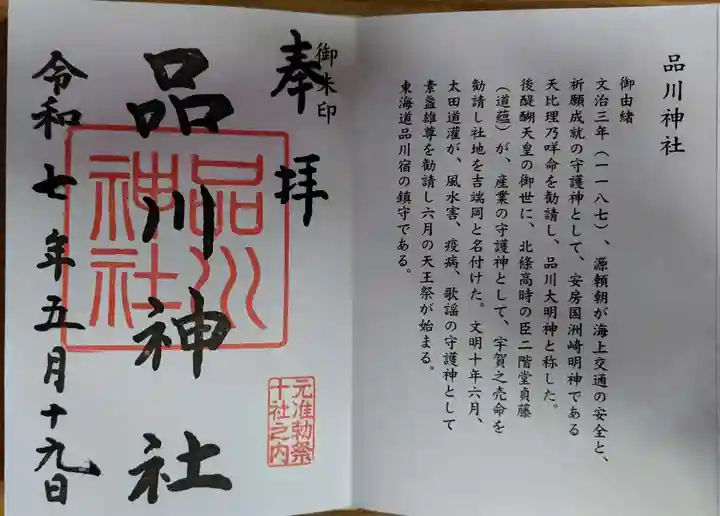 品川神社
御由緒
文治三年(一一八七)、源頼朝が海上交通の安全と、
祈願成就の守護神として、安房国洲崎明神である
天比理乃咩命を勧請し、品川大明神と称した。
後醍醐天皇の御世に、北條高時の臣二階堂貞藤
(道蘊)が、産業の守護神として、宇賀之売命を
勧請し社地を吉端岡と名付けた。文明十年六月、
太田道灌が、風水害、疫病、歌謡の守護神として
素盞雄尊を勧請し六月の天王祭が始まる。
東海道品川宿の鎮守である。
御朱印
奉拝
品川神社
品川
神社
元准勅祭
十社之内
令和七年五月十九日